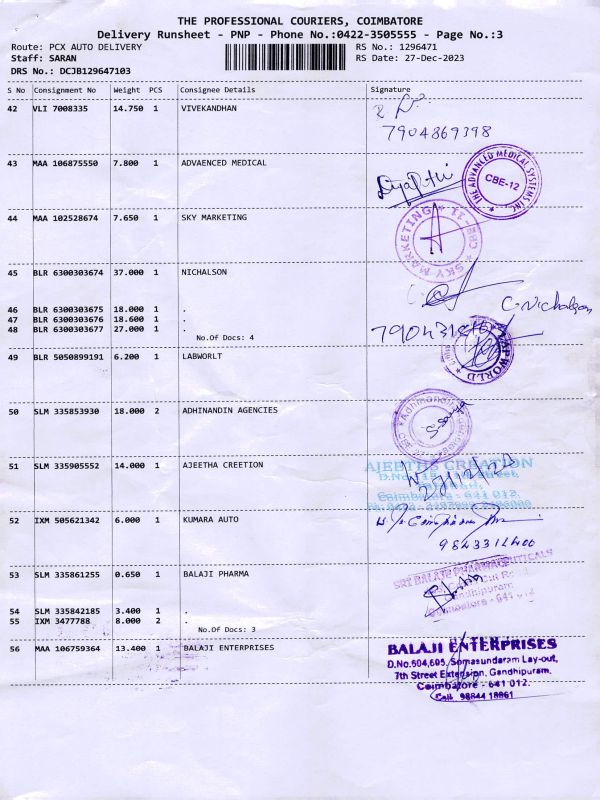 THE PROFESSIONAL COURIERS, COIMBATORE
Delivery Runsheet - PNP - Phone No.:0422-3505555 - Page No.:3
Route: PCX AUTO DELIVERY RS No.: 1296471
Staff: SARAN RS Date: 27-Dec-2023
DRS No.: DCJB129647103
S No Consignment No Weight PCS Consignee Details Signature
42 VLI 7008335 14.750 1 VIVEKANDHAN
7904869398
43 MAA 106875550 7.800 1 ADVAENCED MEDICAL
THE ADVANCED MEDICAL SYSTEMS INC
CBE-12
44 MAA 102528674 7.650 1 SKY MARKETING
SKY MARKETING CBE-11
45 BLR 6300303674 37.000 1 NICHALSON
C. Nichalson
46 BLR 6300303675 18.000 1 .
47 BLR 6300303676 18.600 1 .
48 BLR 6300303677 27.000 1 .
No.Of Docs: 4
49 BLR 5050899191 6.200 1 LABWORLT
50 SLM 335853930 18.000 2 ADHINANDIN AGENCIES
51 SLM 335905552 14.000 1 AJEETHA CREETION
CREATION
Coimbatore - 641 012.
27/12/23
52 IXM 505621342 6.000 1 KUMARA AUTO
53 SLM 335861255 0.650 1 BALAJI PHARMA
SRI BALAJI PHARMACEUTICALS
Gandhipuram
Coimbatore - 641 012
54 SLM 335842185 3.400 1 .
55 IXM 3477788 8.000 2 .
No.Of Docs: 3
56 MAA 106759364 13.400 1 BALAJI ENTERPRISES
BALAJI ENTERPRISES
D.No.604,605, Somasundaram Lay-out,
7th Street Extension, Gandhipuram,
Coimbatore - 641 012.
Cell: 98844 18861